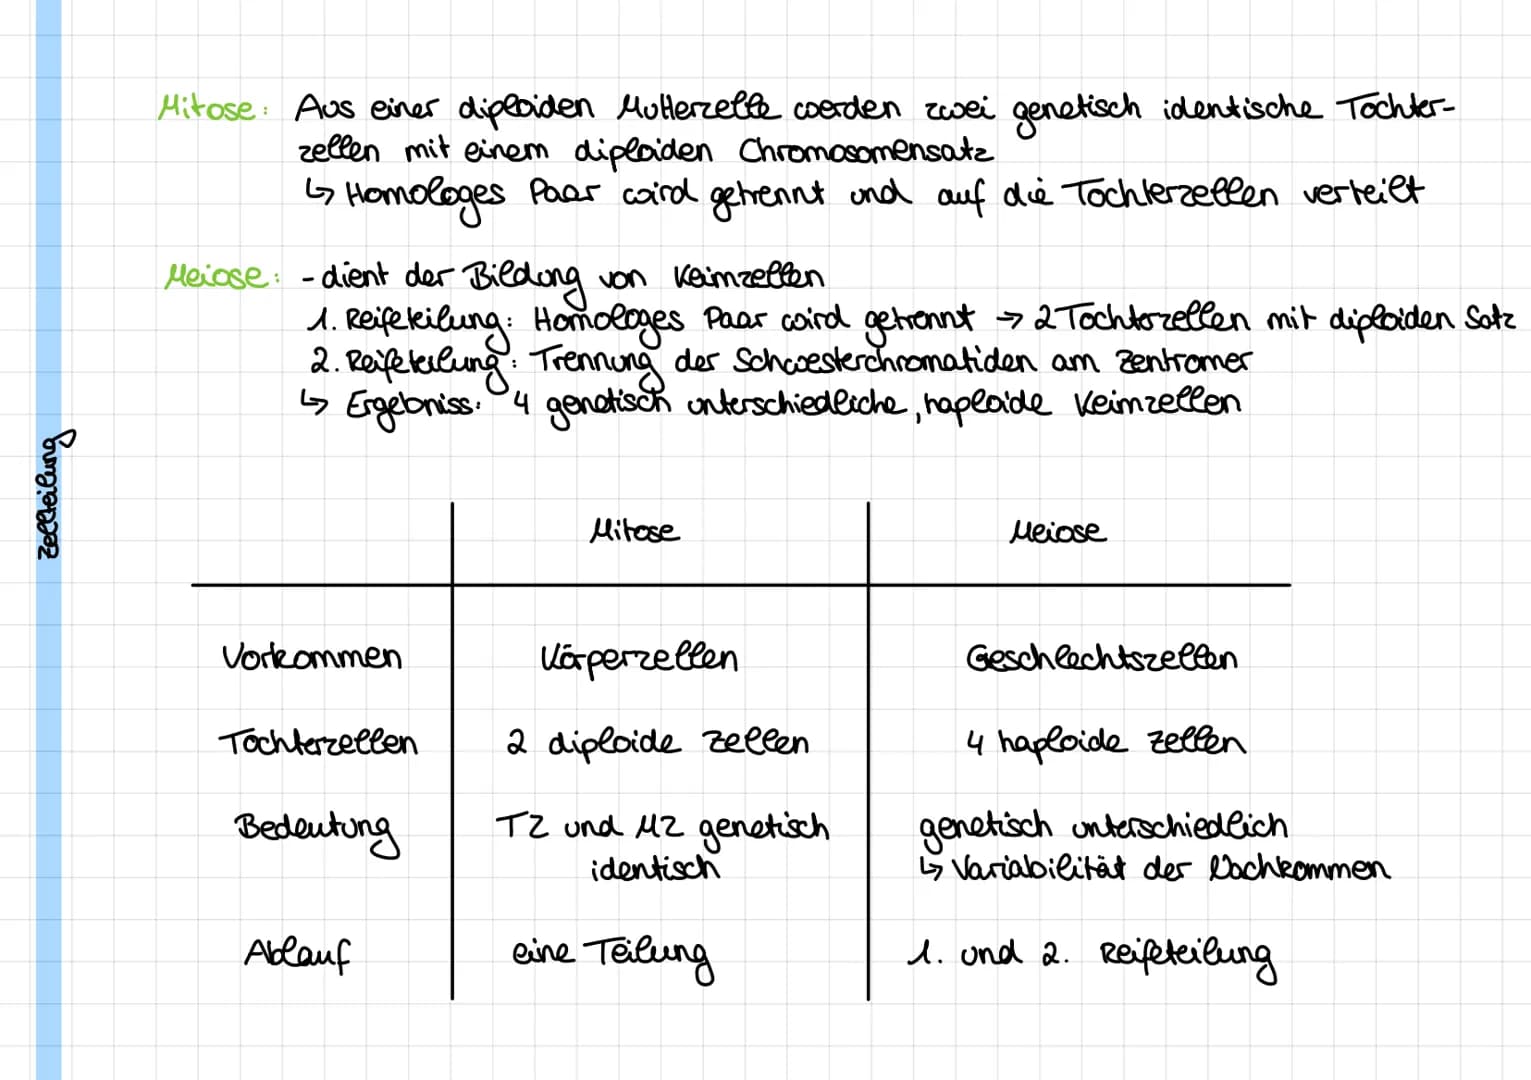 Zellteilung
Mitose: Aus einer diploiden Mutterzelle werden zwei genetisch identische Tochter-
zellen mit einem diploiden Chromosomensatz
↳ Homologes Paar wird getrennt und auf die Tochterzellen verteilt
Meiose: - dient der Bildung von Keimzellen
1. Reifeteilung: Homologes Paar wird getrennt → 2 Tochterzellen mit diploiden Satz
2. Reifeteilung: Trennung der Schwesterchromatiden am Zentromer
↳ Ergebniss: 4 genetisch unterschiedliche, haploide Keimzellen
Mitose Meiose
Vorkommen Körperzellen Geschlechtszellen
Tochterzellen 2 diploide Zellen 4 haploide Zellen
Bedeutung TZ und MZ genetisch genetisch unterschiedlich
identisch ↳ Variabilität der Nachkommen
Ablauf eine Teilung 1. und 2. Reifeteilung